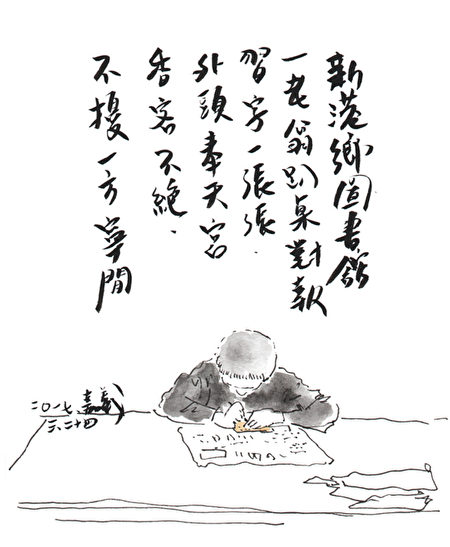 新港鄉圖書館
一老翁趴桌對報
習字一張張.
外頭奉天宮
香客不絕.
不擾一方寧閒
二〇一七嘉義
六.二十四